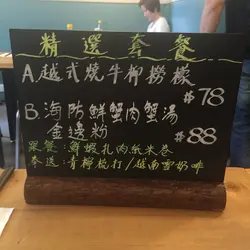 精選套餐
A.越式燒牛柳撈檬
$78
B.海防鮮蟹肉蟹湯
金邊粉
$88
菜餐:鮮蝦扎肉紙米卷
奉送:青檸梳打/越南雪奶啡